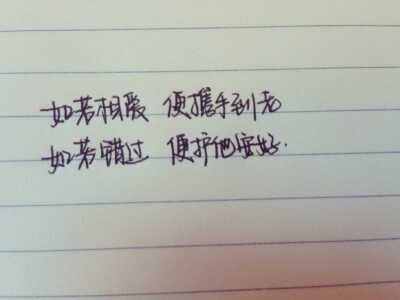 如若相爱 便携手到老
如若错过 便护他安好.